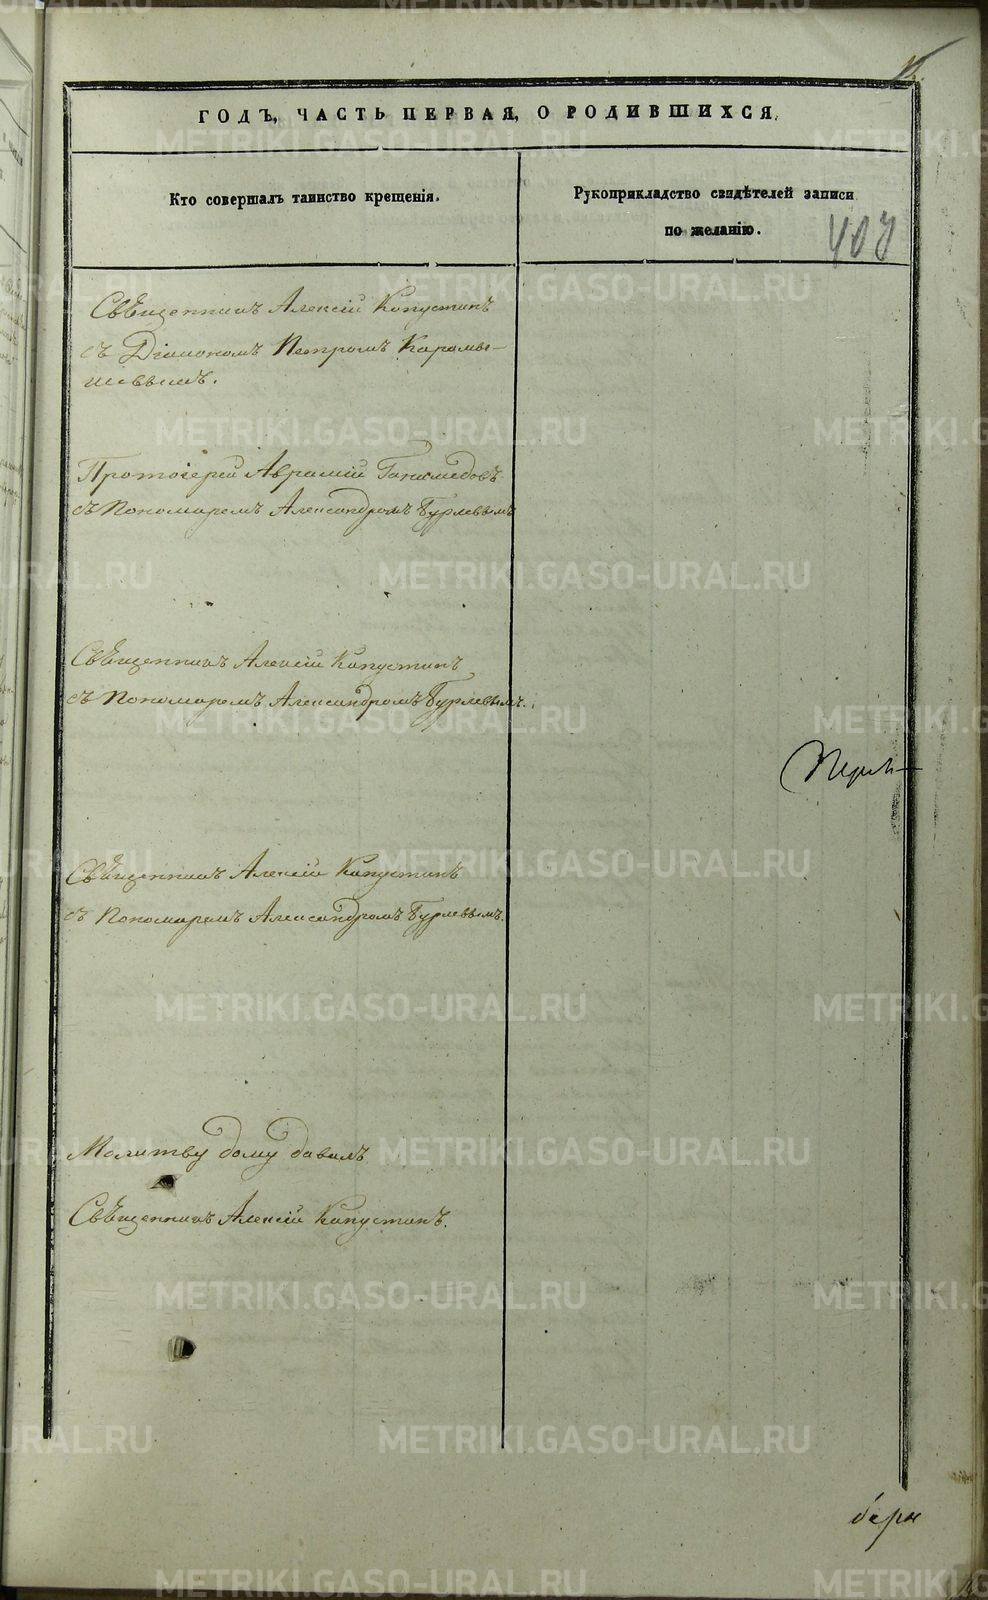 ГОДЪ, ЧАСТЬ ПЕРВАЯ, О РОДИВШИХСЯ.
Кто совершалъ таинство крещенія.
Рукоприкладство свидѣтелей записи
по желанію.
408
Священникъ Алексій Капустинъ
съ Діакономъ Петромъ Карамы-
шевымъ.
Протоіерей Аврамій Ганимедовъ
съ Пономаремъ Александромъ Бурлевымъ
Священникъ Алексій Капустинъ
съ Пономаремъ Александромъ Бурлевымъ.
Священникъ Алексій Капустинъ
съ Пономаремъ Александромъ Бурлевымъ.
Молитву дому давалъ
Священникъ Алексій Капустинъ.
METRIKI.GASO-URAL.RU